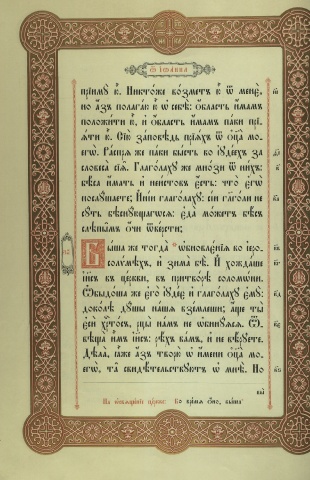 Ѿ Іѡанна
прїимꙋ ю̀. Никто́же во́зметъ ю̀ ѿ менє̀,
но а҆́зъ полага́ю ю̀ ѡ҆ себѣ̀: ѡ҆́бласть и҆́мамъ
положи́ти ю̀, и҆ ѡ҆́бласть и҆́мамъ па́ки прї-
ѧ́ти ю̀. Сїю̀ за́повѣдь прїѧ́хъ ѿ ѻ҆ц҃а̀ мо-
егѡ̀. Ра́спрѧ же па́ки бы́сть во і҆ꙋде́ехъ за
словеса̀ сїѧ̑. Глаго́лахꙋ же мно́зи ѿ ни́хъ:
бѣ́са и҆́мать и҆ неи́стовъ є҆́сть: что̀ є҆гѡ̀
послꙋ́шаете; И҆ні́и глаго́лахꙋ: сі́и глаго́ли не
сꙋ́ть бѣснꙋ́ющагѡсѧ: є҆да̀ мо́жетъ бѣ́съ
слѣпы̑мъ ѻ҆́чи ѿве́рсти;
Бы́ша же тогда̀ ѡ҆бновле́нїѧ во і҆еро-
соли́мѣхъ, и҆ зима̀ бѣ̀. И҆ хожда́ше
і҆и҃съ въ це́ркви, въ притво́рѣ соломѡ́ни.
Ѡ҆быдо́ша же є҆го̀ і҆ꙋде́е и҆ глаго́лахꙋ є҆мꙋ̀:
доко́лѣ дꙋ́шы на́шѧ взе́млеши; а҆́ще ты̀
є҆сѝ хрⷭ҇то́съ, рцы̀ на́мъ не ѡ҆бинꙋ́ѧсѧ. Ѿ-
вѣща̀ и҆̀мъ і҆и҃съ: рѣ́хъ ва́мъ, и҆ не вѣ́рꙋете.
Дѣла̀, ꙗ҆̀же а҆́зъ творю̀ ѡ҆ и҆́мени ѻ҆ц҃а̀ мо-
егѡ̀, та̑ свидѣ́тельствꙋютъ ѡ҆ мнѣ̀. Но
вы̀
На ѡ҆свѧще́нїе це́ркве: Во вре́мѧ ѻ҆́но, бы́ша: